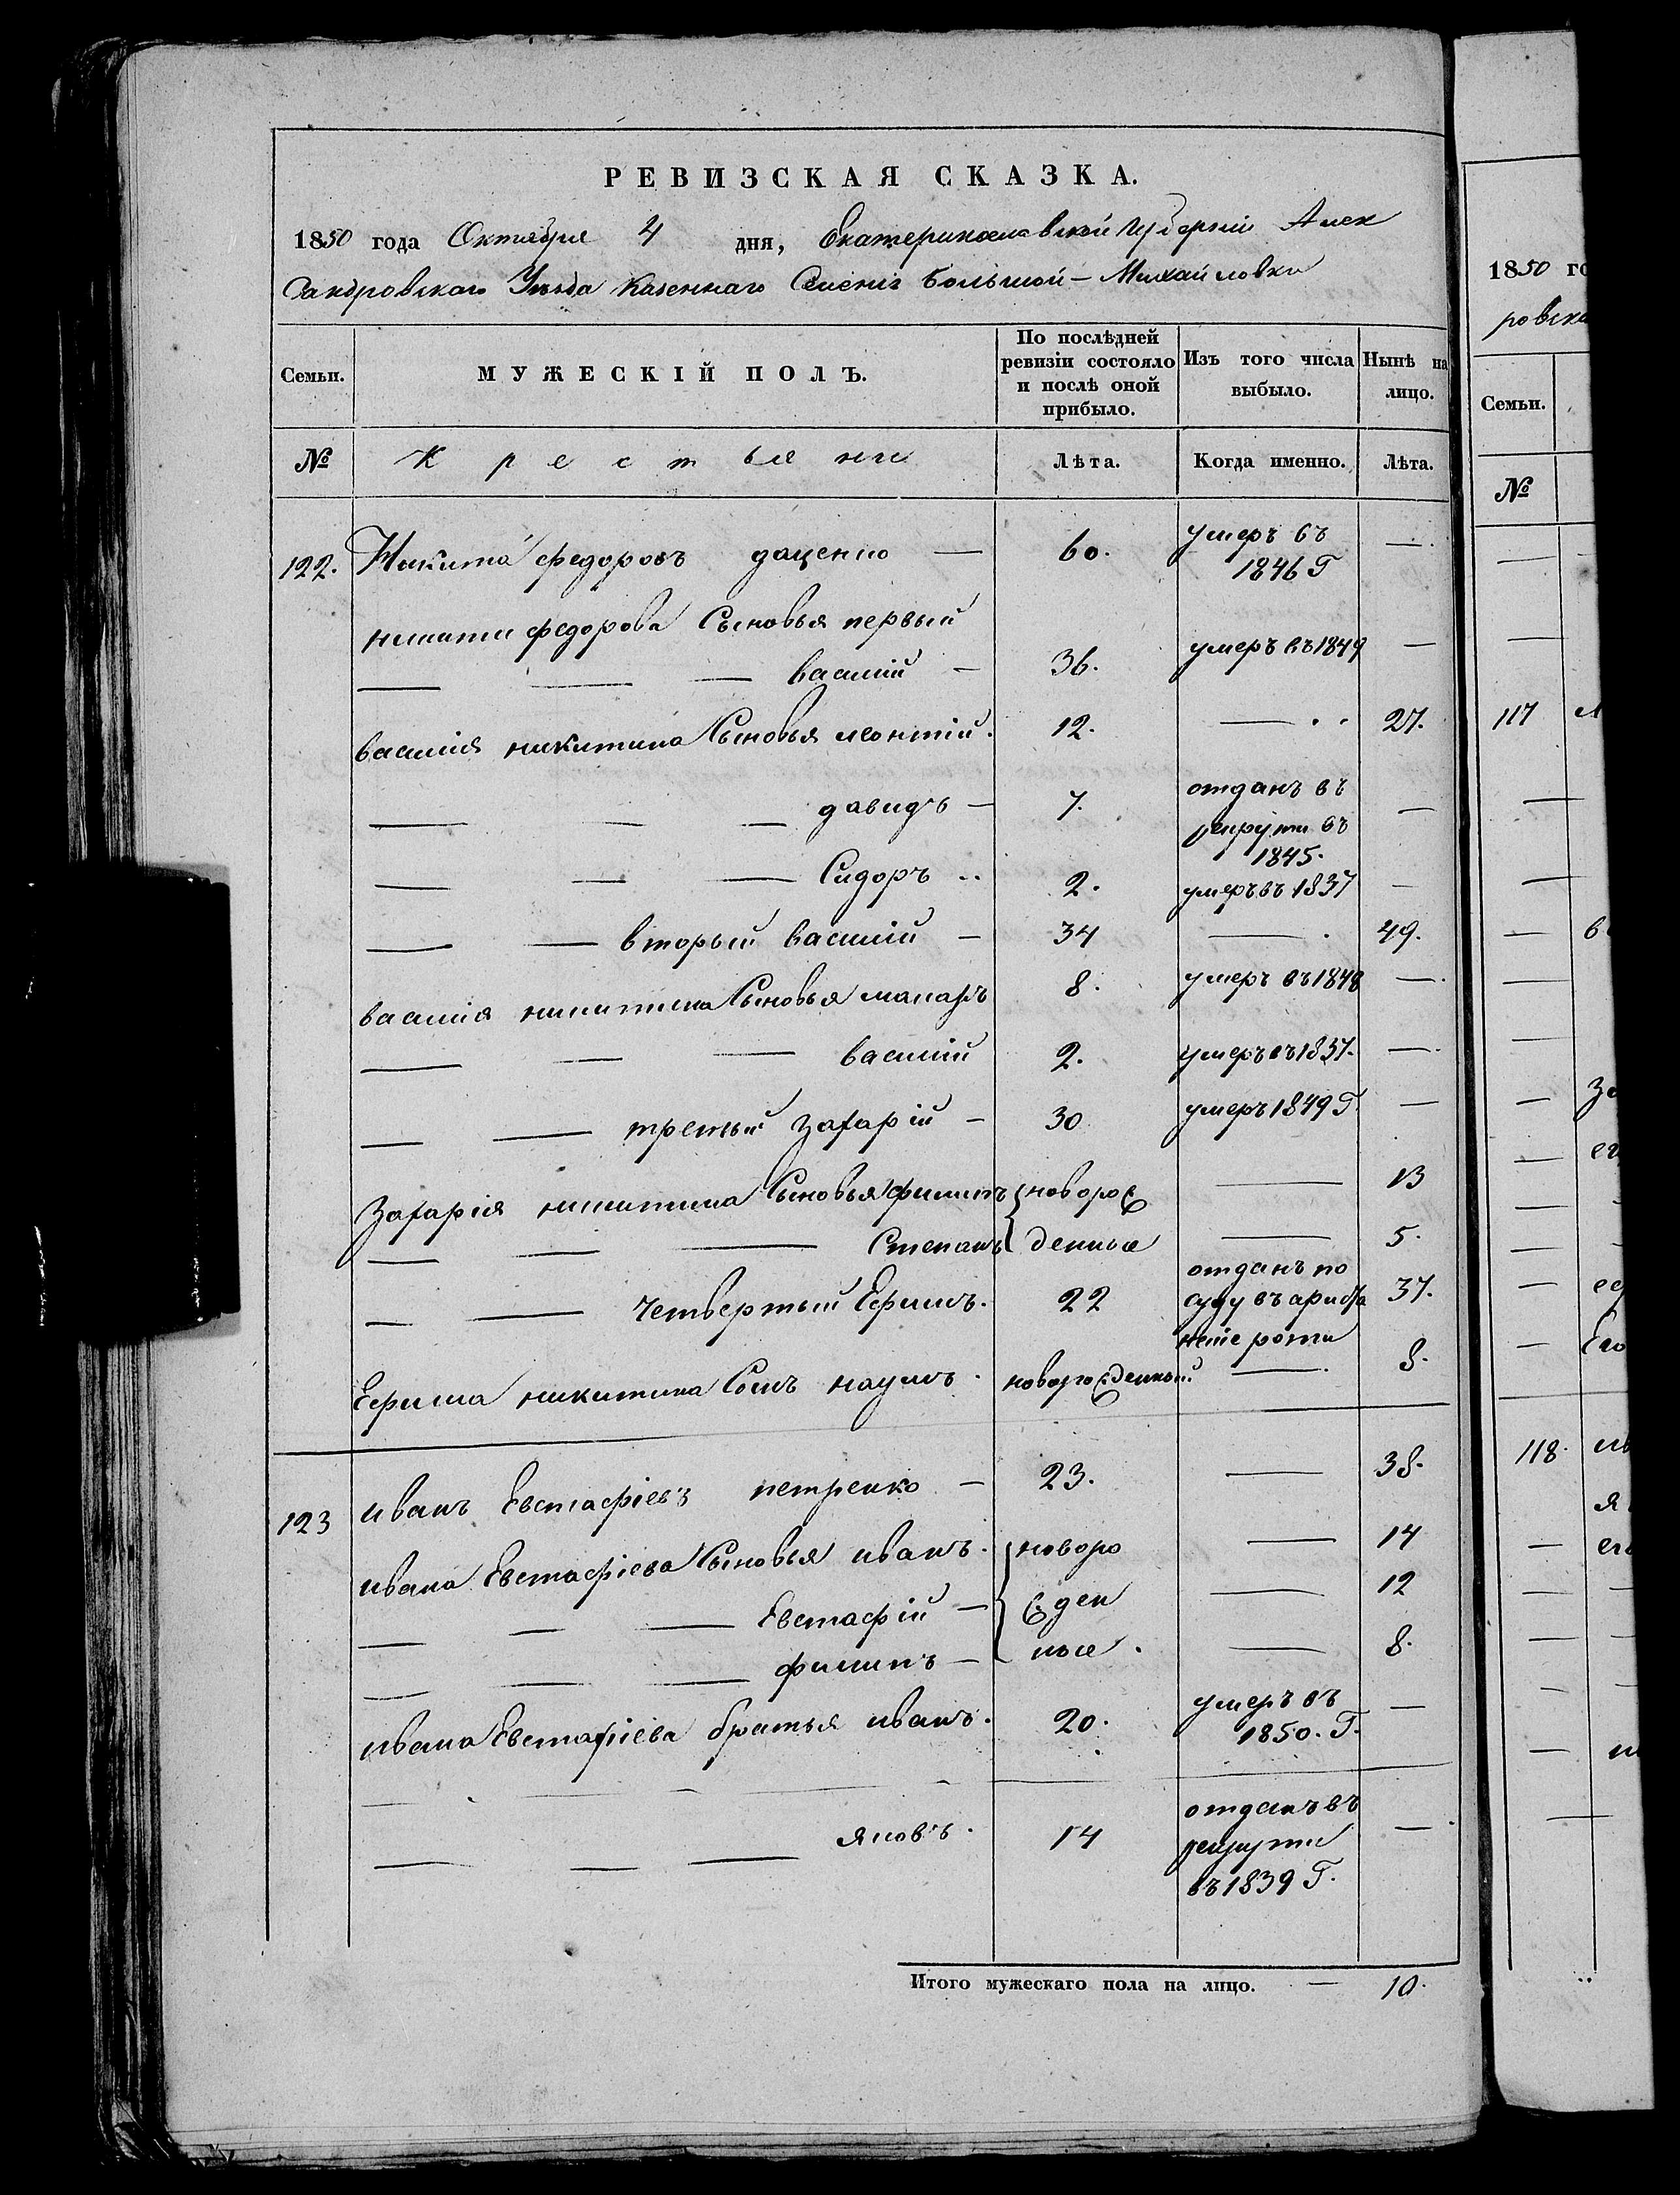 РЕВИЗСКАЯ СКАЗКА.
1850 года Октября 4 дня, Екатеринославской Губерніи Алек
сандровскаго Уѣзда Казеннаго Селенія Большой-Михайловки
Семьи. МУЖЕСКІЙ ПОЛЪ. По послѣдней ревизіи состояло и послѣ оной прибыло. Изъ того числа выбыло. Нынѣ на лицо.
№ Крестьяне Лѣта. Когда именно. Лѣта.
122. Никита федоровъ даценко — 60. умеръ въ 1846 Г —
никиты федорова Сыновья первый
— — — василій — 36. умеръ въ 1849 —
василія никитина Сыновья леонтій. 12. — 27.
— — — давидъ — 7. отданъ въ рекруты въ 1845. —
— — — Сидоръ 2. умеръ въ 1837 —
— — вторый василій — 34 — 49.
василія никитина Сыновья макаръ 8. умеръ въ 1848 —
— — — василій 2. умеръ въ 1837. —
— — третый Захарій — 30 умеръ 1849 Г. —
Захарія никитина Сыновья филипъ новорож — 13
— — — Степанъ денные — 5.
— — четвертый Ефимъ. 22 отданъ по суду въ ареста нскіе роты 37.
Ефима никитина Сынъ наумъ. новорожденный — 8.
123 иванъ Евстафіевъ петренко — 23. — 38.
ивана Евстафіева Сыновья иванъ. новоро — 14
— — — Евстафій — жден — 12
— — — филипъ — ные. — 8.
ивана Евстафіева братья иванъ. 20. умеръ въ 1850. Г. —
— — — яковъ. 14 отданъ въ рекруты въ 1839 Г. —
Итого мужескаго пола на лицо. — 10.
1850 го
ровска
Семьи.
№
117
118.